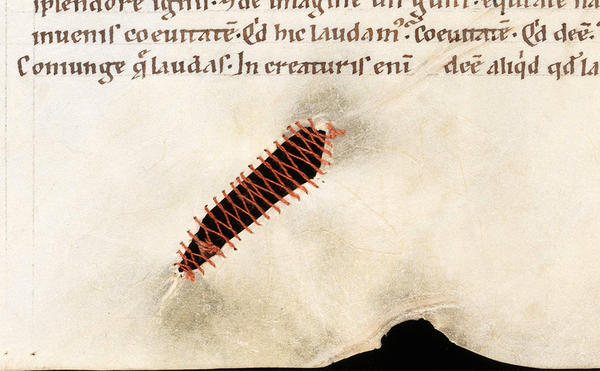 splendore ignis. de imagine
inuenis coeuitatē. Q'd hic laudamꝰ. Coeuitatē. Q'd deē.
Coniunge q̄ laudas. In creaturis enī deē aliq'd qd la